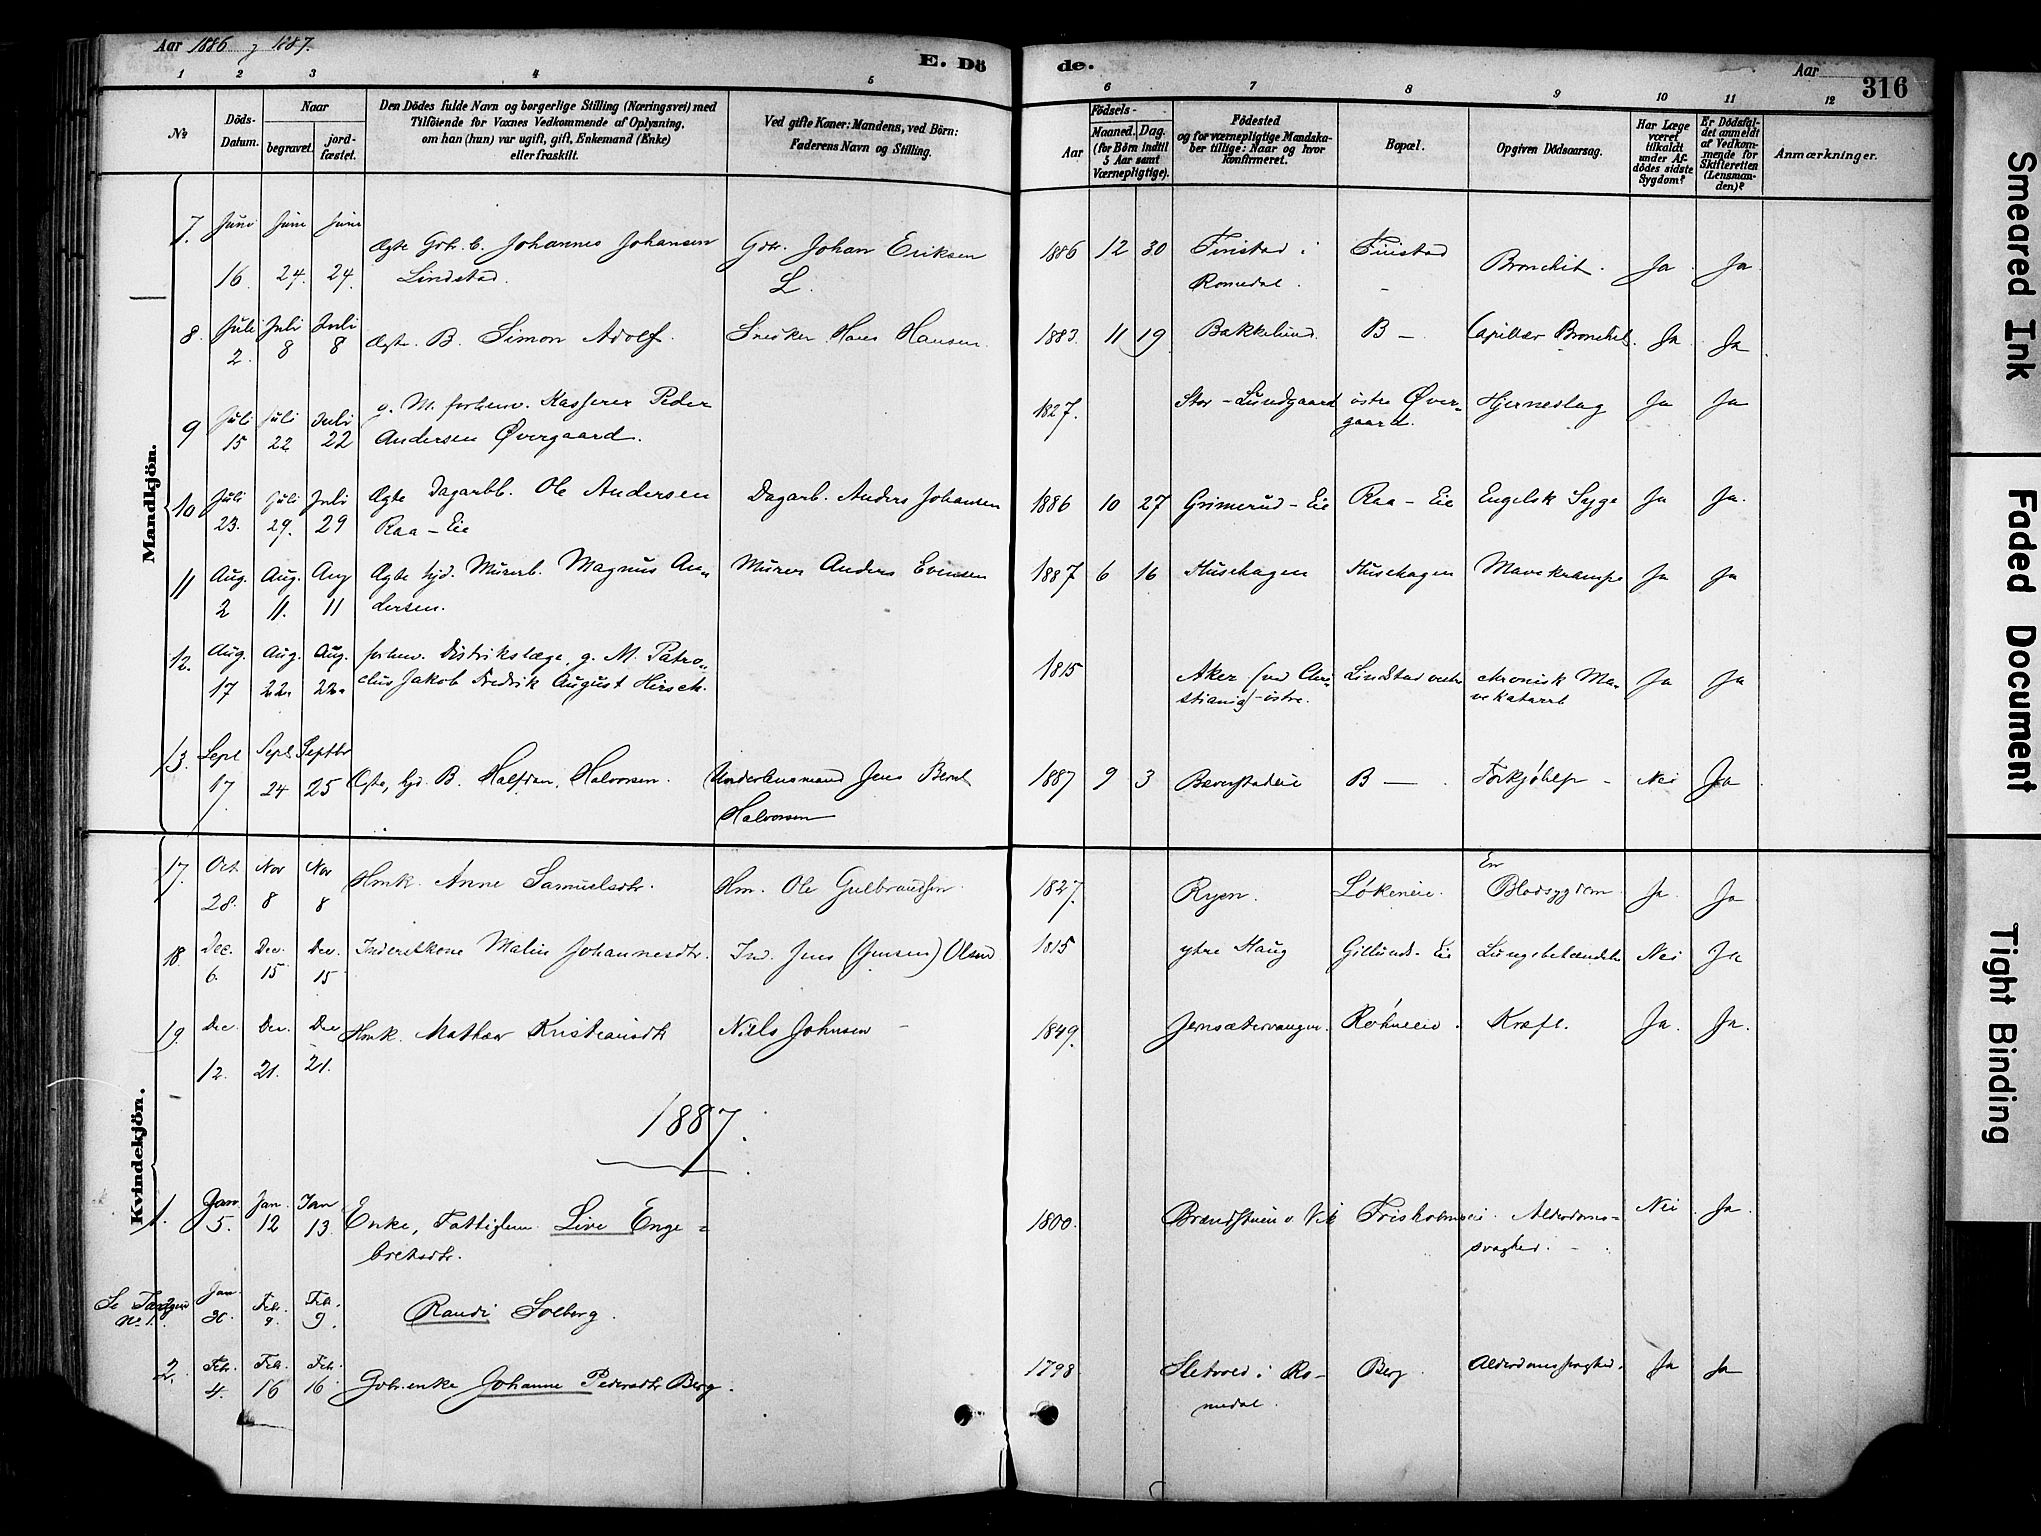 Aar 1886 & 1887.
E. Dö de.
Aar 316
1 2 3 4 5 6 7 8 9 10 11 12
No
Döds-
Datum.
Naar
begravet.
jord-
fæstet.
Den Dödes fulde Navn og borgerlige Stilling (Næringsvei) med
Tilföiende for Voxnes Vedkommende af Oplysning,
om han (hun) var ugift, gift, Enkemand (Enke)
eller fraskilt.
Ved gifte Koner: Mandens, ved Börn:
Faderens Navn og Stilling.
Födsels-
Aar
Maaned. Dag.
(for Börn indtil
5 Aar samt
Værnepligtige).
Födested
og for værnepligtige Mandska-
ber tillige: Naar og hvor
Konfirmeret.
Bopæl.
Opgiven Dödsaarsag.
Har Læge
været
tilkaldt
under Af-
dödes sidste
Sygdom?
Er Dödsfal-
det anmeldt
af Vedkom-
mende for
Skifteretten
(Lensman-
den)?
Anmærkninger.
Mandkjön.
7. Juni Juni Juni
Ægte Gdr. b. Johannes Johansen Gdr. Johan Eriksen 1886 12 30 Finstad i Finstad
16 24. 24. Lindstad. L. Romedal. - Bronchit. Ja Ja
8. Juli Juli Juli
2. 8 8 Ægte B. Simon Adolf. Snekker Hans Hansen. 1883. 11 19 Bakkelund. B — Capillær Bronchit. Ja Ja
9 Juli Juli Juli g. M. forhenv. Kasserer Peder 1827. Stor-Lundgaard östre Øver- Hjerneslag Ja Ja
15 22 22 Andersen Øvergaard. gaard.
10 Juli Juli Juli Ægte Dagarbb. Ole Andersen Dagarb. Anders Johansen 1886 10 27 Grimerud-Eie Raa-Eie Engelsk Syge Ja Ja.
23. 29. 29 Raa-Eie
11 Aug. Aug. Aug Ægte hjd. Murerb. Magnus An- Murer Anders Evensen 1887 6 16 Husehagen Husehagen Mavekrampe Ja Ja
2 11. 11 dersen.
12. Aug. Aug. Aug. forhenv. Distriktslæge, g. M. Patro- 1815 Aker (ved Chri- Lindstad chronisk Ma- Ja Ja
17 22. 22. clus Jakob Fredrik August Hirsch. stiania) östre. vekatarrh
13. Sept Sept Septbr
17. 24 25 Ægte, hjd. B. Halfdan Halvorsen. Underlensmand Jens Bernt 1887 9 3 B — Forkjølelse Nei Ja
Halvorsen
Kvindekjön.
17. Oct Nov Nov
28. 8 8 Hmk. Anne Samuelsdtr. Hm. Ole Gulbrandsen 1827. Ryen. Løkeneie. En Blodsygdom Ja Ja
18 Dec. Dec. Dec. Inderstkone Malin Johannesdtr. Ind. Jens (Jensen) Olsen 1815 ytre Haug Gillunds-Eie Lungebetændelse Nei Ja
6. 15 15
19. Dec. Dec. Dec Hmk. Mathea Kristiansdtr Niels Johnsen 1849. Jensætervangen. Kræft. Ja. Ja.
12. 21. 21.
1887.
1. Jan. Jan. Jan
5. 12 13 Enke, Fattiglem. Live Enge- 1800. Alderdoms- Nei Ja.
bretsdtr. svaghed.
Feb. Feb.
9. 9. Randi Solberg.
2. Febr. Feb. Feb. 1798 i Ro- Berg Alderdomssvaghed. Ja Ja
4. 16 16 Gdr.enke Johanne Pedersdtr Berg. medal.
Smeared Ink
Faded Document
Tight Binding